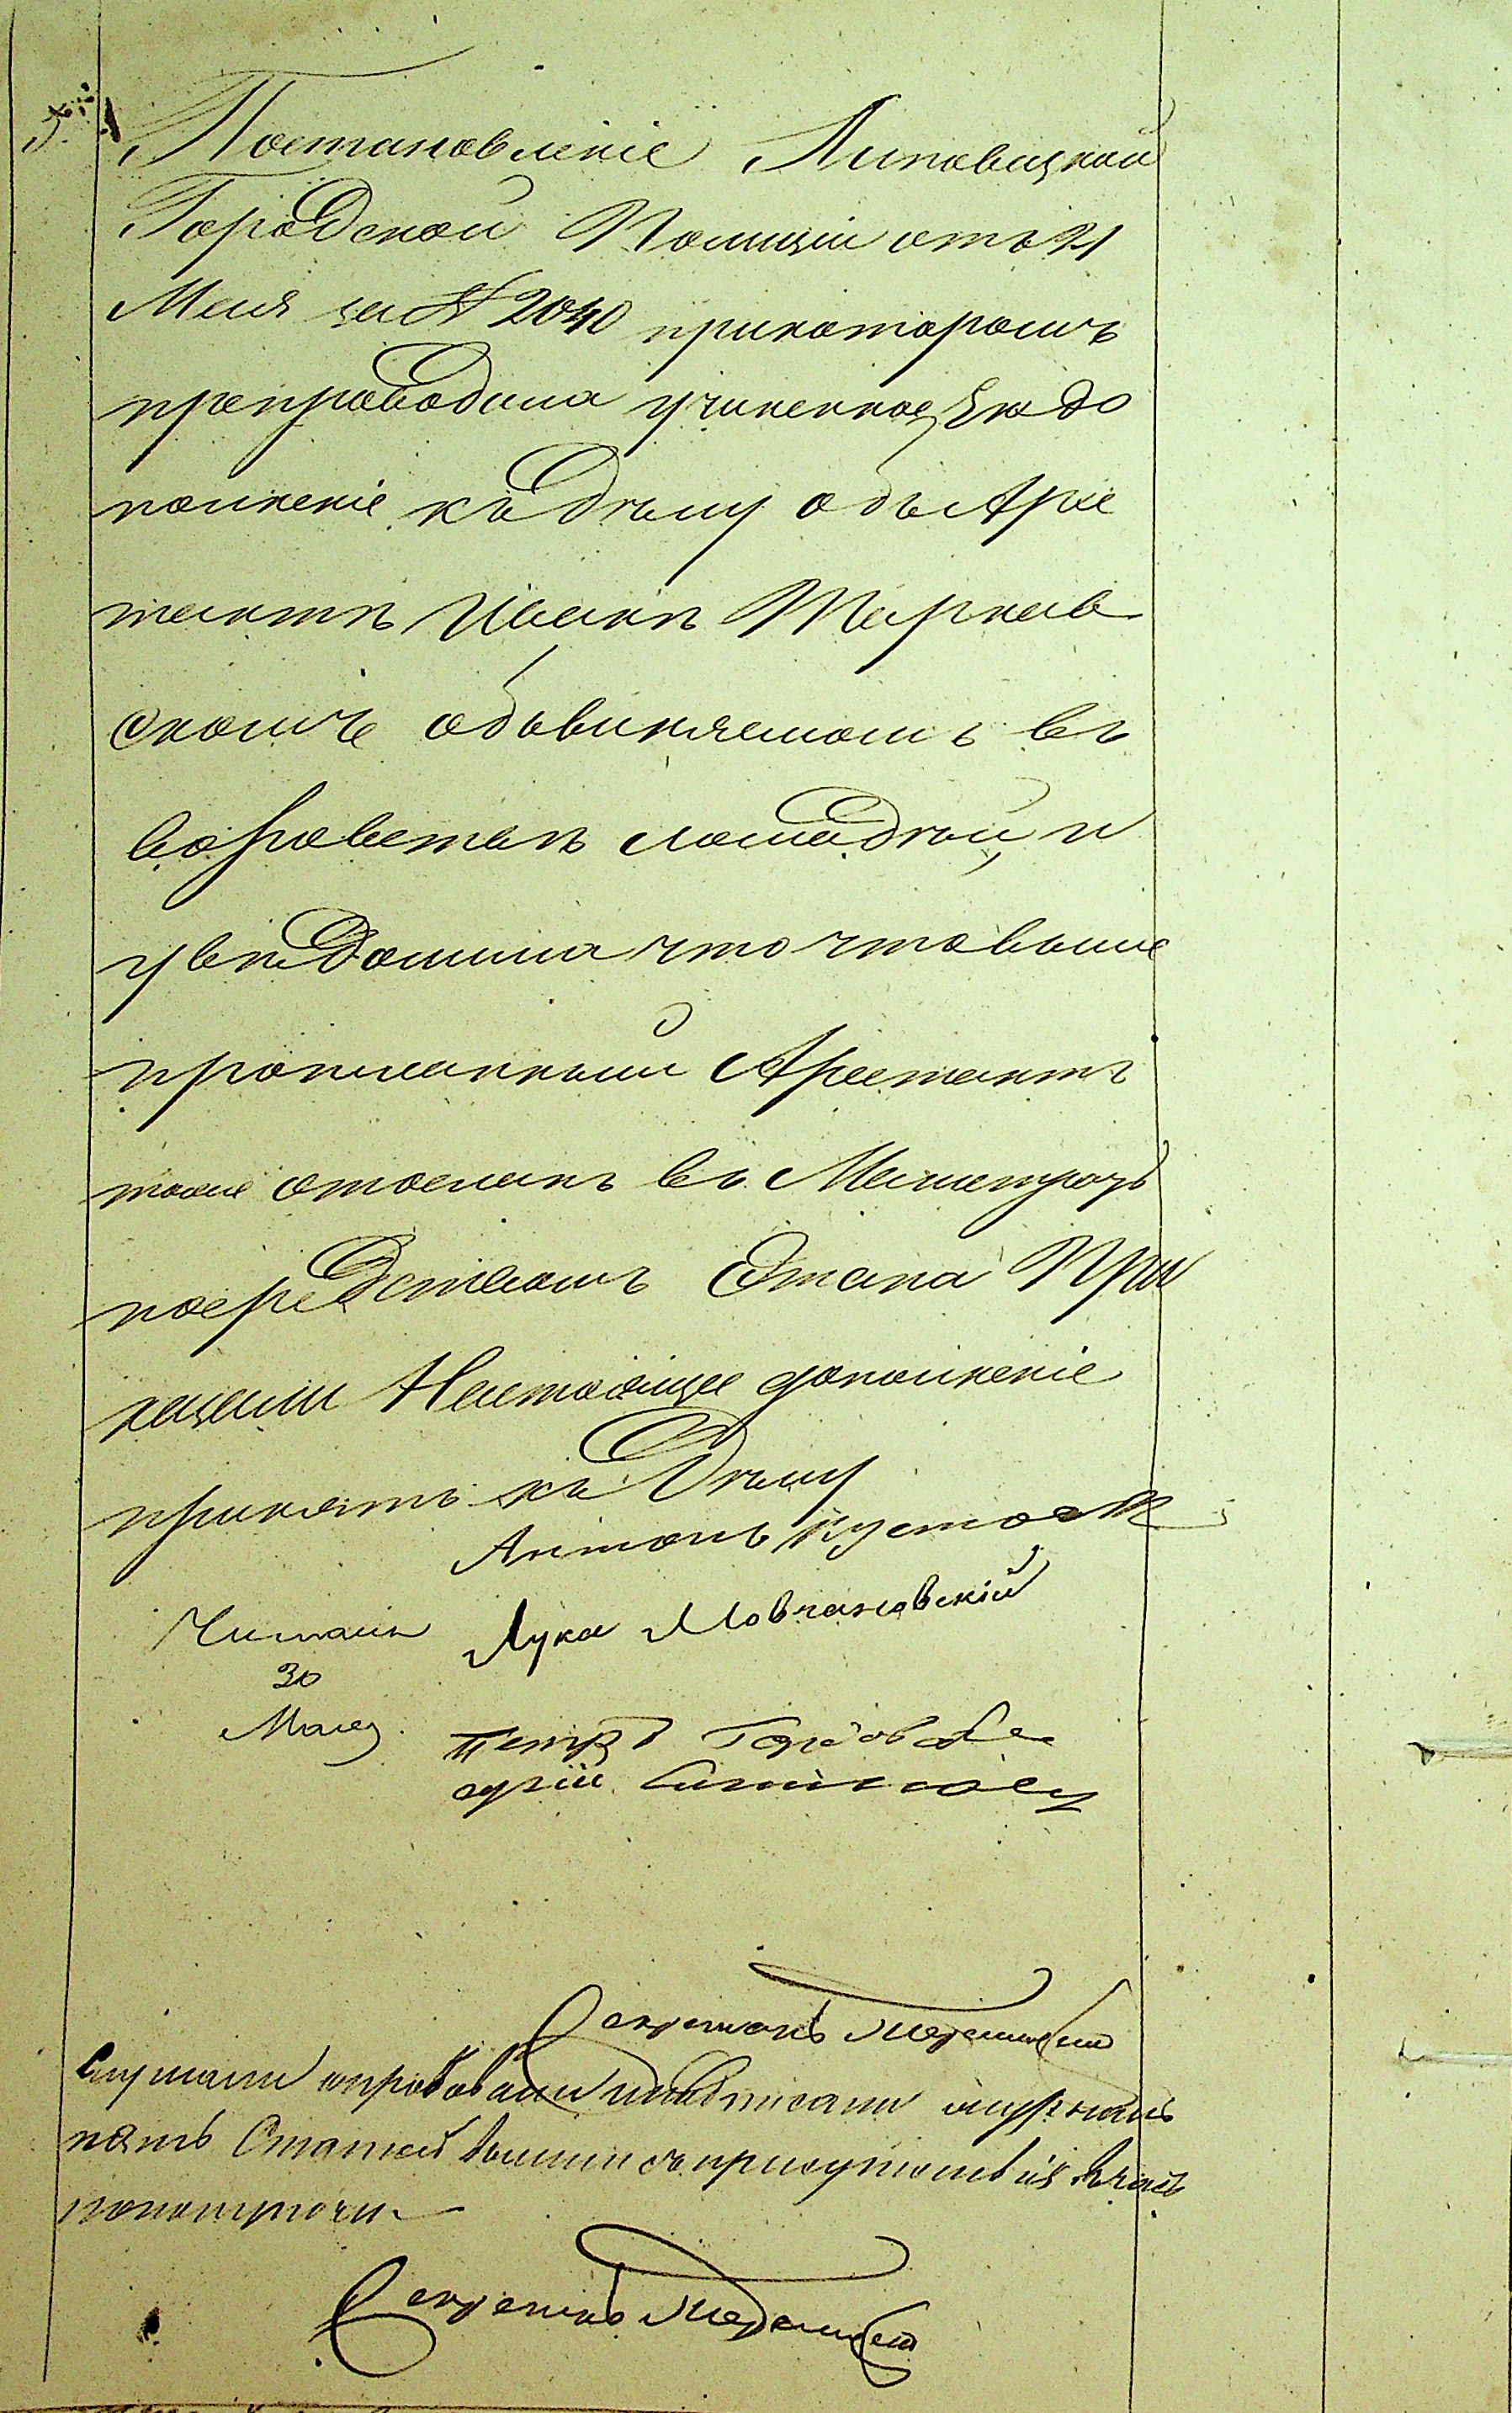 5.
Постановленіе Липовецкой
Городской Полиціи отъ 21
Мая за № 2040 прикоторомъ
препроводила учиненное Ею до
полненіе къ Дѣлу объ Аре
стантѣ Иванѣ Тарнав
скомъ объвиняемомъ въ
воровствѣ лошадѣй, и
увѣдомила что
прописанный Арестантъ
отосланъ въ Магистратъ
посредствомъ Этапа При
казали Настоящее дополненіе
принять къ Дѣлу
Антонъ
Читалъ Лука Мовчановскій
30
Мая
Петръ
Секретарь
Слушали подписали журналъ
пять Статей вышли съ присутствія въ часъ
пополуночи
Секретарь